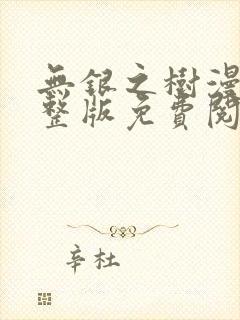 無銀之樹漫
整版免費閱
辛杜